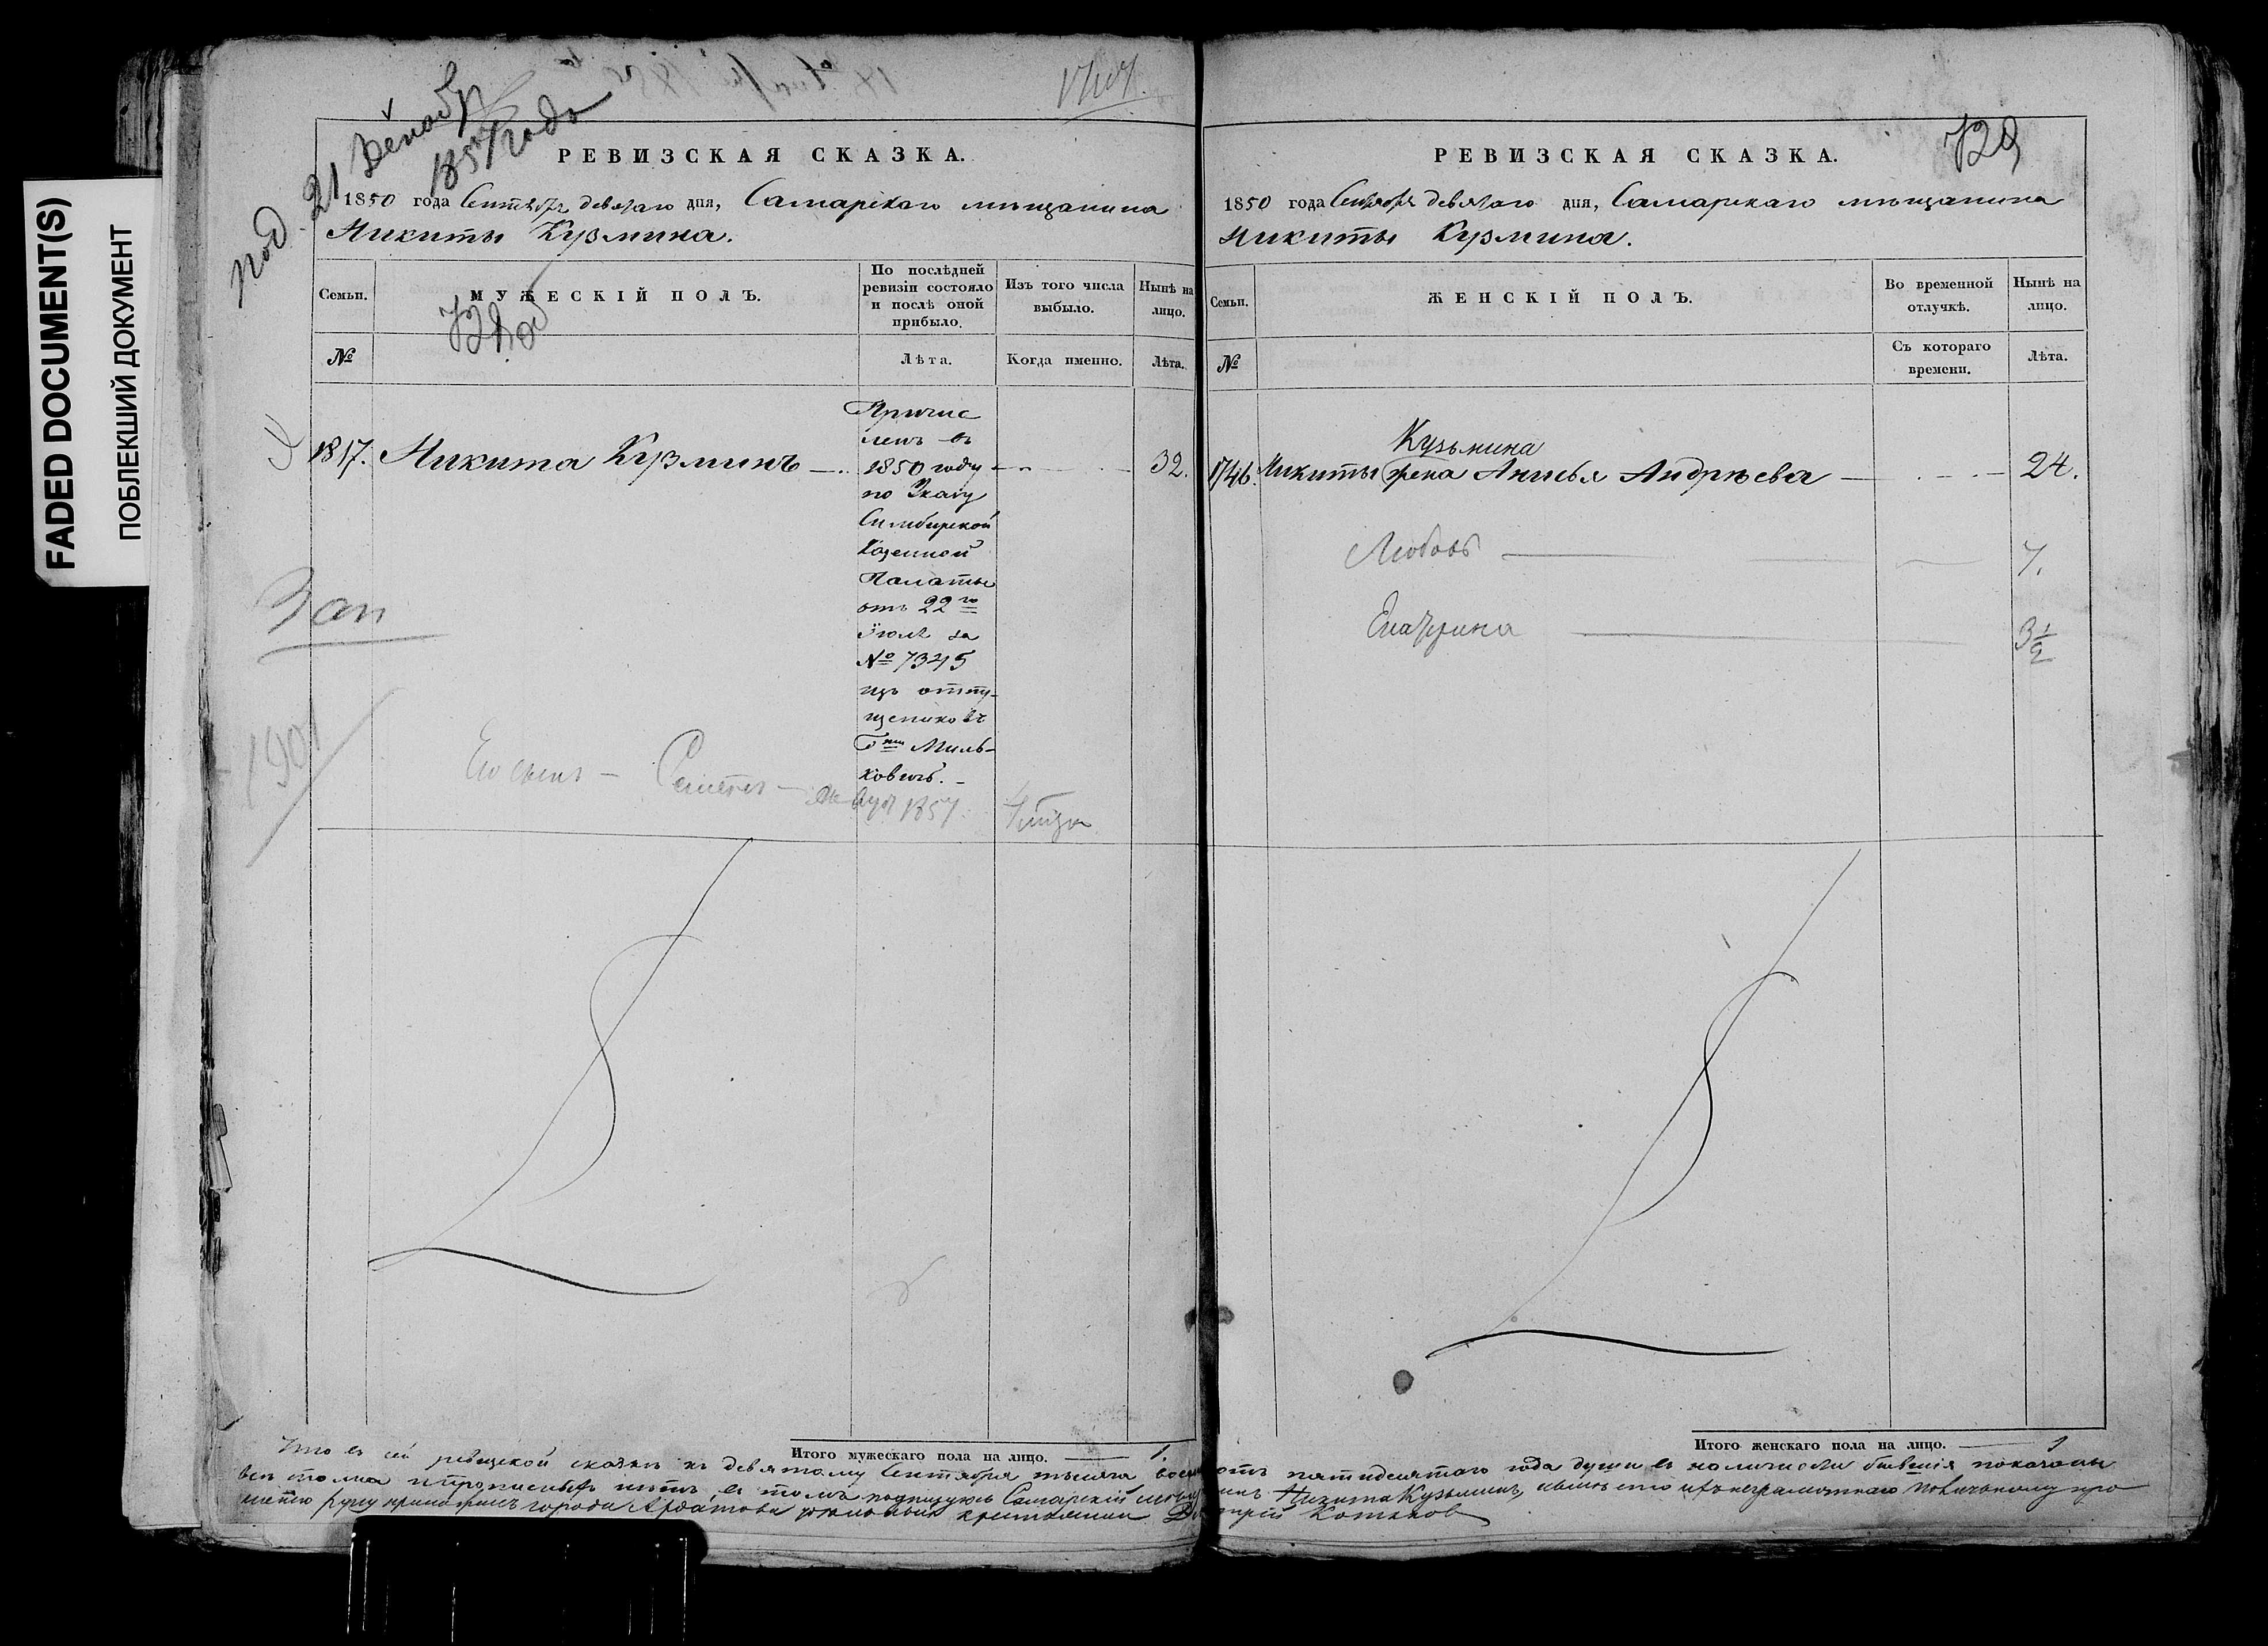 FADED DOCUMENT(S)
ПОБЛЕКШИЙ ДОКУМЕНТ
под. 21 Декабр
1857 года
РЕВИЗСКАЯ СКАЗКА.
1850 года Сентября девятаго дня, Самарскаго мѣщанина
Никиты Кузмина.
Семьи.
МУЖЕСКІЙ ПОЛЪ.
По послѣдней ревизіи состояло и послѣ оной прибыло.
Изъ того числа выбыло.
Нынѣ на лицо.
№
Лѣта.
Когда именно.
Лѣта.
1817. Никита Кузминъ
32.
Причис
ленъ въ
1850 году
по Указу
Симбирской
Казенной
Палаты
отъ 22го
Іюля за
№ 7345
изъ отпу-
щениковъ
Миль-
ковичъ.
Зап
1901
Его сынъ — 
1857.
Итого мужескаго пола на лицо. 1.
РЕВИЗСКАЯ СКАЗКА.
729
1850 года Сентября девятаго дня, Самарскаго мѣщанина
Никиты Кузмина.
Семьи.
ЖЕНСКІЙ ПОЛЪ.
Во временной отлучкѣ.
Нынѣ на лицо.
№
Съ котораго времени.
Лѣта.
Кузьмина
1746. Никиты жена Анисья Андрѣева
24.
Любовь
7.
Екатерина
3 1/2
Итого женскаго пола на лицо. 1
Что въ сей ревизской сказкѣ къ девятому Сентября тысяча восемь сотъ пятидесятаго года души въ наличности бывшія показаны
всѣ и прописныхъ нѣтъ въ томъ подписуюсь Самарскій мещанинъ Никита Кузьминъ, неграмотнаго по личному про
шенію руку приложилъ города Ардатова крестьянин Дмитрій